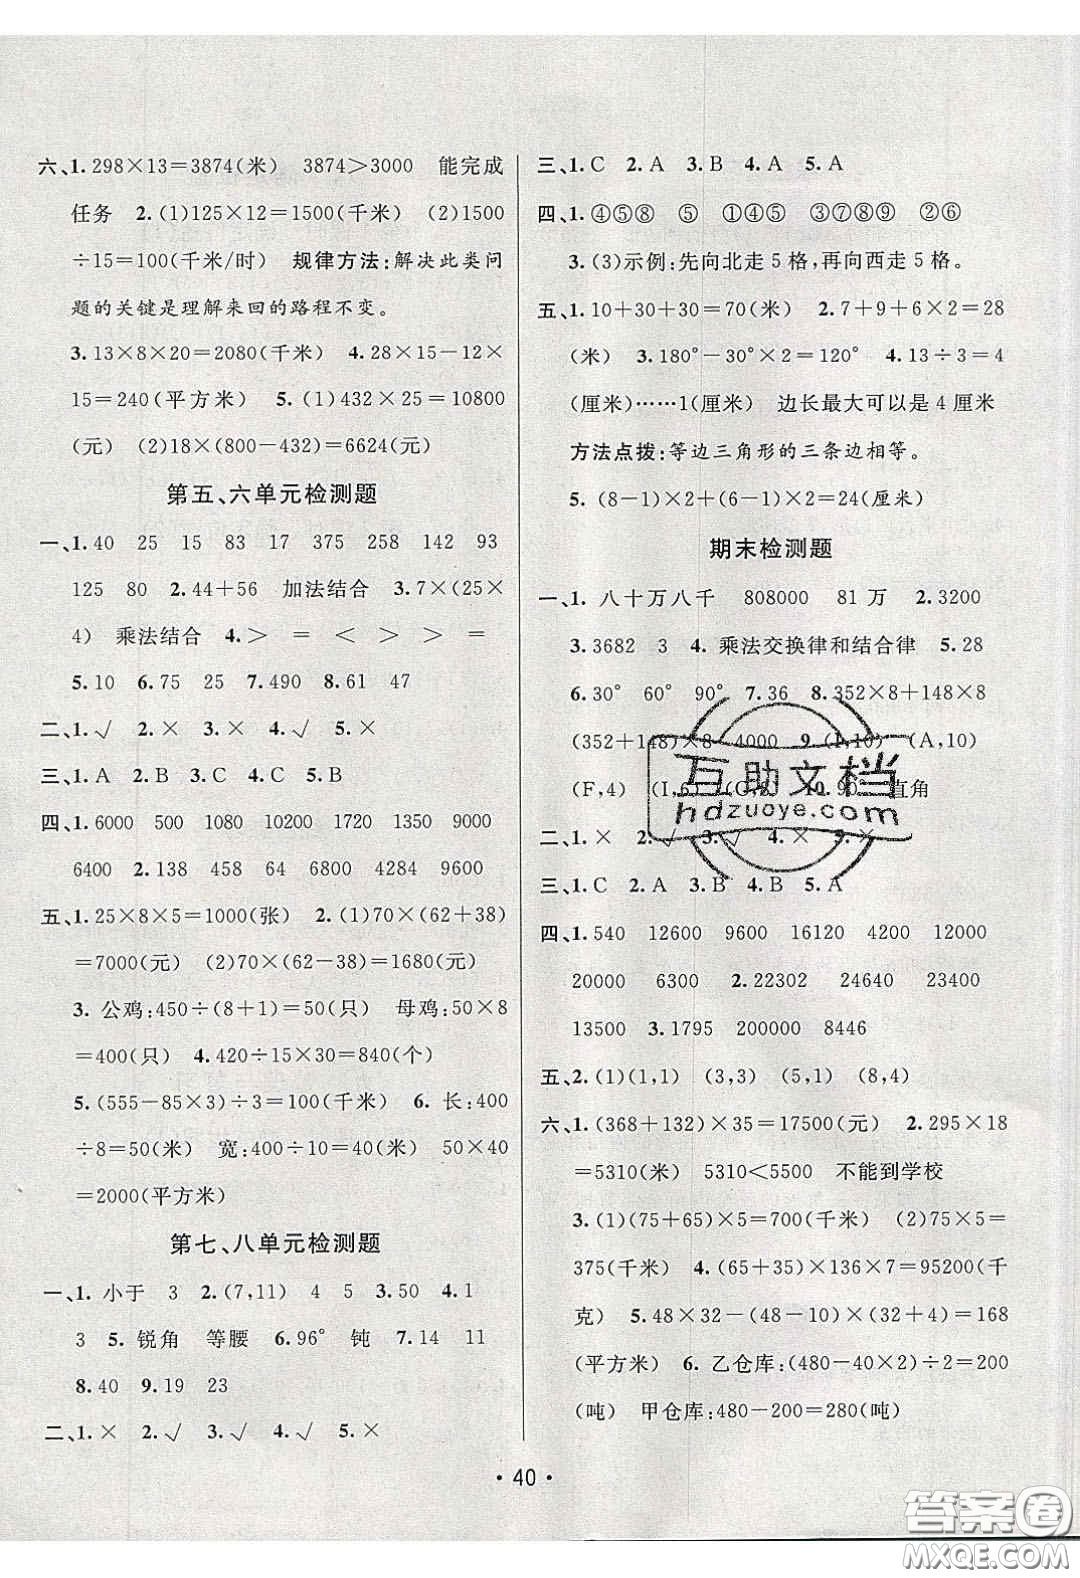 六、1.298×13=3874(米) 3874>3000 能完成
任务 2.(1)125×12=1500(千米) (2)1500
÷15=100(千米/时) 规律方法:解决此类问
题的关键是理解来回的路程不变。
3.13×8×20=2080(千米) 4.28×15-12×
15=240(平方米) 5.(1)432×25=10800
(元) (2)18×(800-432)=6624(元)
第五、六单元检测题
一、1.40 25 15 83 17 375 258 142 93
125 80 2.44+56 加法结合 3.7×(25×
4) 乘法结合 4.> = < > > =
5.10 6.75 25 7.490 8.61 47
二、1.√ 2.× 3.× 4.√ 5.×
三、1.A 2.B 3.C 4.C 5.B
四、1.6000 500 1080 10200 1720 1350 9000
6400 2.138 6300 6800 4284 9600
五、1.25×8×5=1000(张) 2.(1)70×(62+38)
=7000(元) (2)70×(62-38)=1680(元)
3.公鸡:450÷(8+1)=50(只) 母鸡:50×8
=400(只) 4.420÷15×30=840(个)
5.(555-85×3)÷3=100(千米) 6.长:400
÷8=50(米) 宽:400÷10=40(米) 50×40
=2000(平方米)
第七、八单元检测题
一、1.小于 3 2.(7,11) 4 5 3.50 4.1
3 5.锐角 等腰 6.96° 钝 7.14 11
8.40 9.19 23
二、1.× 2.√ 3.√ 4.√ 5.×
三、1.C 2.A 3.B 4.A 5.A
四、1.④⑤⑧ ⑤ ①④⑤ ③⑦⑧⑨ ②⑥
3.(3)示例:先向北走5格,再向西走5格。
五、1.10+30+30=70(米) 2.7+9+6×2=28
(米) 3.180°-30°×2=120° 4.13÷3=4
(厘米)……1(厘米) 边长最大可以是4厘米
方法点拨:等边三角形的三条边相等。
5.(8-1)×2+(6-1)×2=24(厘米)
期末检测题
一、1.八十万八千 808000 81万 2.3200
3.3682 3 4.乘法交换律和结合律 5.28
6.30° 60° 90° 7.36 8.352×8+148×8
(352+148)×8 4000 9.(1,10) (A,10)
(F,4) (I,6) (G,2) 10.90° 直角
二、1.× 2.√ 3.√ 4.× 5.×
三、1.C 2.A 3.B 4.B 5.A
四、1.540 12600 9600 16120 4200 12000
20000 6300 2.22302 24640 23400
13500 3.1795 200000 8446
五、2.(1)(1,1) (3,3) (5,1) (8,4)
六、1.(368+132)×35=17500(元) 2.295×18
=5310(米) 5310<5500 不能到学校
3.(1)(75+65)×5=700(千米) (2)75×5=
375(千米) 4.(65+35)×136×7=95200(千
克) 5.48×32-(48-10)×(32+4)=168
(平方米) 6.乙仓库:(480-40×2)÷2=200
(吨) 甲仓库:480-200=280(吨)
互助文档
hdzuoye.com
·40·
答案圈
MXQE.COM